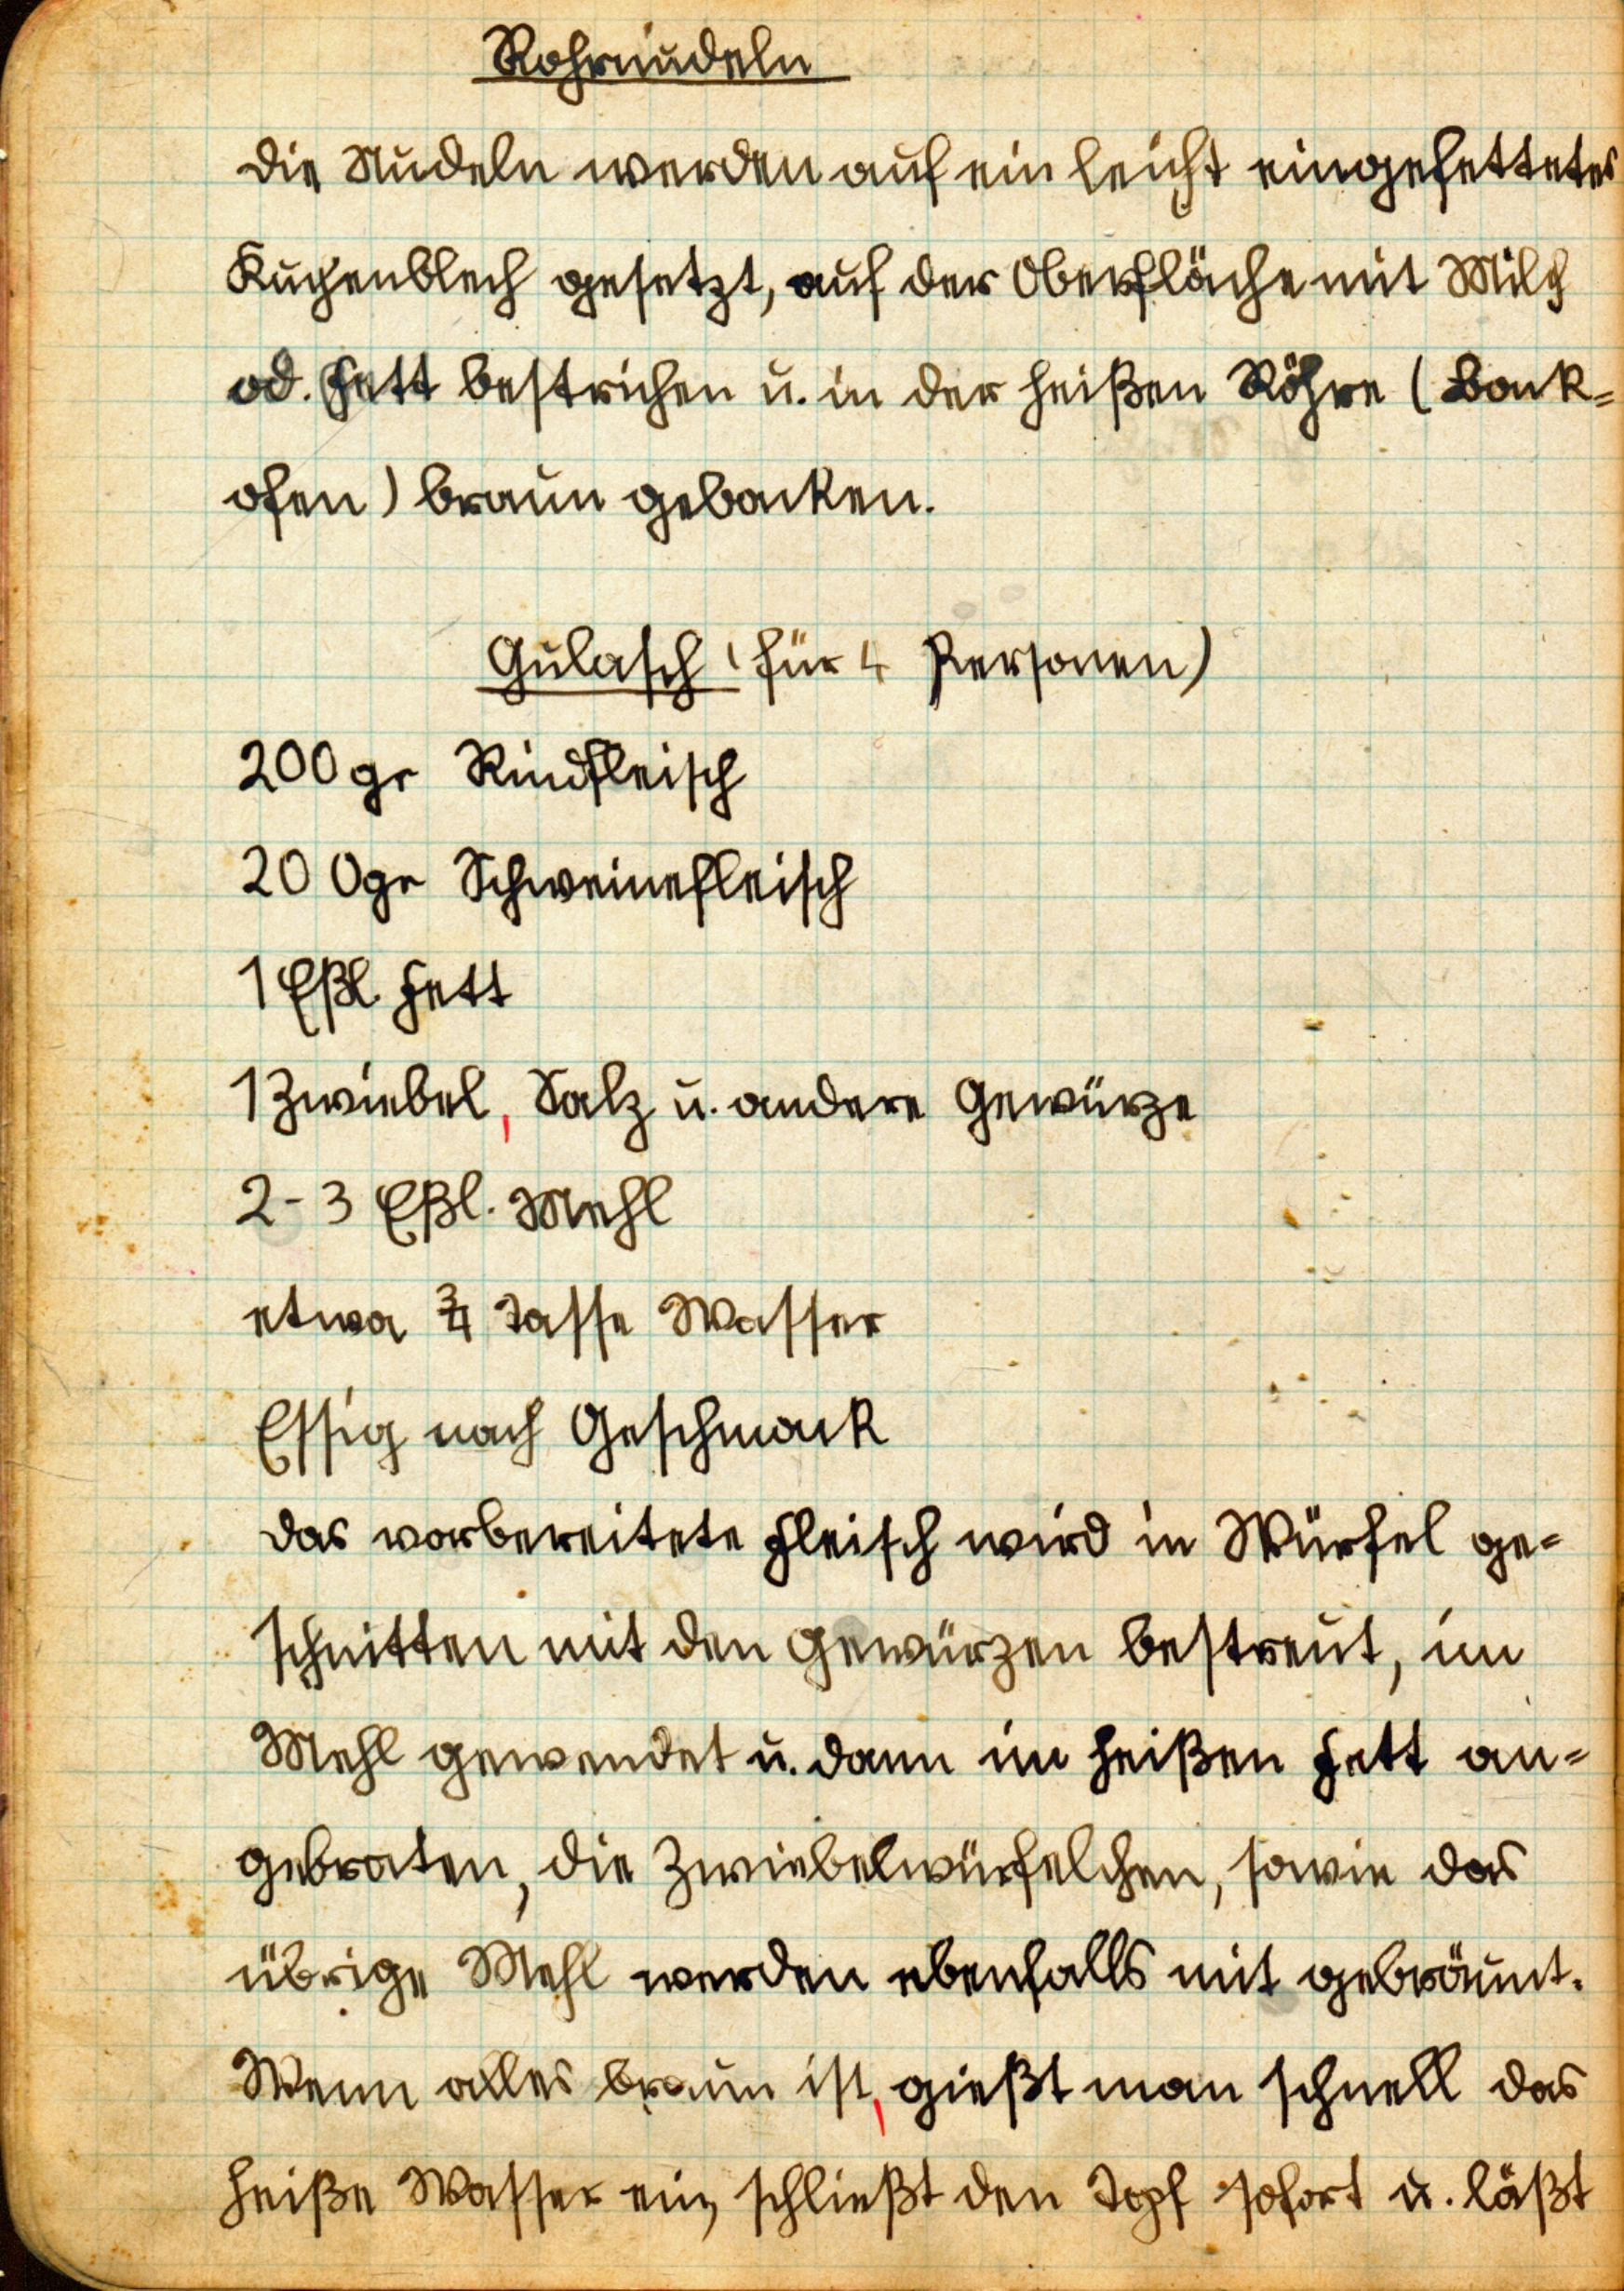 Rohrnudeln
Die Nudeln werden auf ein leicht eingefettetes
Kuchenblech gesetzt, auf der Oberfläche mit Milch
od. Fett bestrichen u. in der heißen Röhre (Back=
ofen) braun gebacken.
Gulasch (für 4 Personen)
200 gr Rindfleisch
200gr Schweinefleisch
1 Eßl. Fett
1 Zwiebel, Salz u. andere Gewürze
2-3 Eßl. Mehl
etwa 3/4 Tasse Wasser
Essig nach Geschmack
Das vorbereitete Fleisch wird in Würfel ge=
schnitten mit den Gewürzen bestreut, im
Mehl gewendet u. dann im heißen Fett an=
gebraten, die Zwiebelwürfelchen, sowie das
übrige Mehl werden ebenfalls mit gebräunt.
Wenn alles braun ist, gießt man schnell das
heiße Wasser ein, schließt den Topf sofort u. läßt